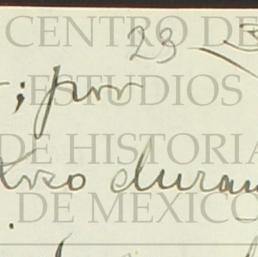 CENTRO DE
23
ESTUDIOS
; por
DE HISTORIA
duran
DE MEXICO